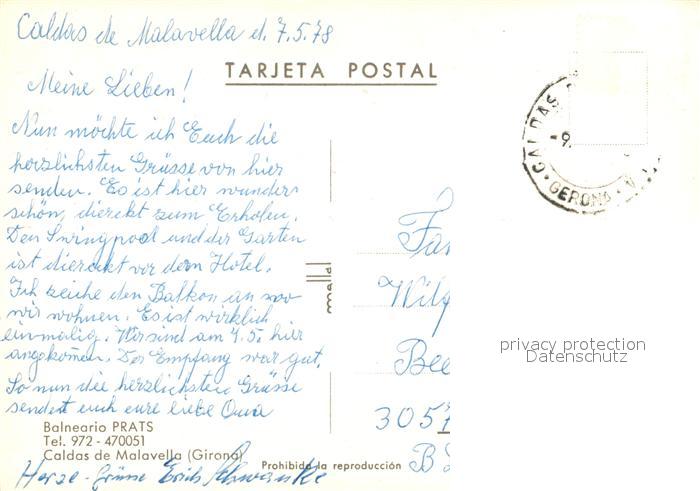 Caldas de Malavella d. 7.5.78
TARJETA POSTAL
Meine Lieben!
Nun möchte ich Euch die
herzlichsten Grüsse von hier
senden. Es ist hier wunder
schön, dierekt zum Erholen.
Den Swingpool und der Garten
ist dierekt vor dem Hotel.
Ich zeiche den Balkon an wo
wir wohnen. Es ist wirklich
einmalig. Wir sind am 4.5. hier
angekomen. Der Empfang war gut.
So nun die herzlichsten Grüsse
sendet euch eure liebe Oma
Balneario PRATS
Tel. 972 - 470051
Caldas de Malavella (Girona)
Prohibida la reproducción
Herzl. Grüsse Erich
CALDAS
-9.
GERONA
Fam
Wil
Bee
3057
B
privacy protection
Datenschutz